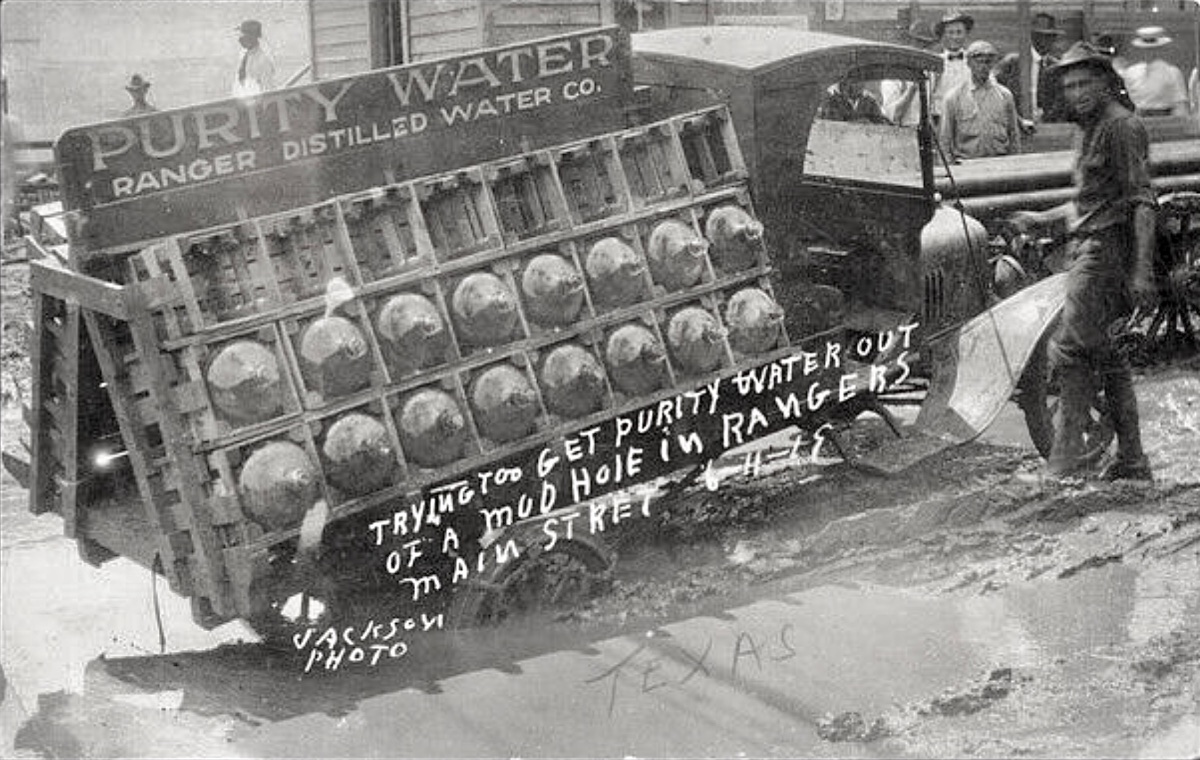 PURITY WATER
RANGER DISTILLED WATER CO.
TRYING TOO GET PURITY WATER OUT
OF A MUD HOLE IN RANGERS
MAIN STRET 6-11-19
JACKSON
PHOTO
TEXAS